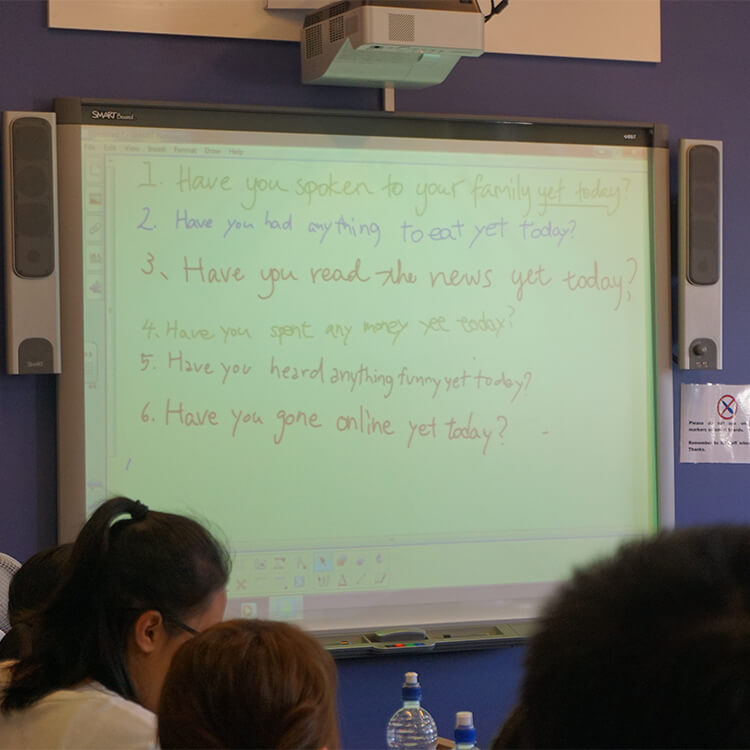 SMART Board
File Edit View Insert Format Draw Help
1. Have you spoken to your family yet today?
2. Have you had anything to eat yet today?
3. Have you read the news yet today?
4. Have you spent any money yet today?
5. Have you heard anything funny yet today?
6. Have you gone online yet today?
Please
markers
Remember to
Thanks.